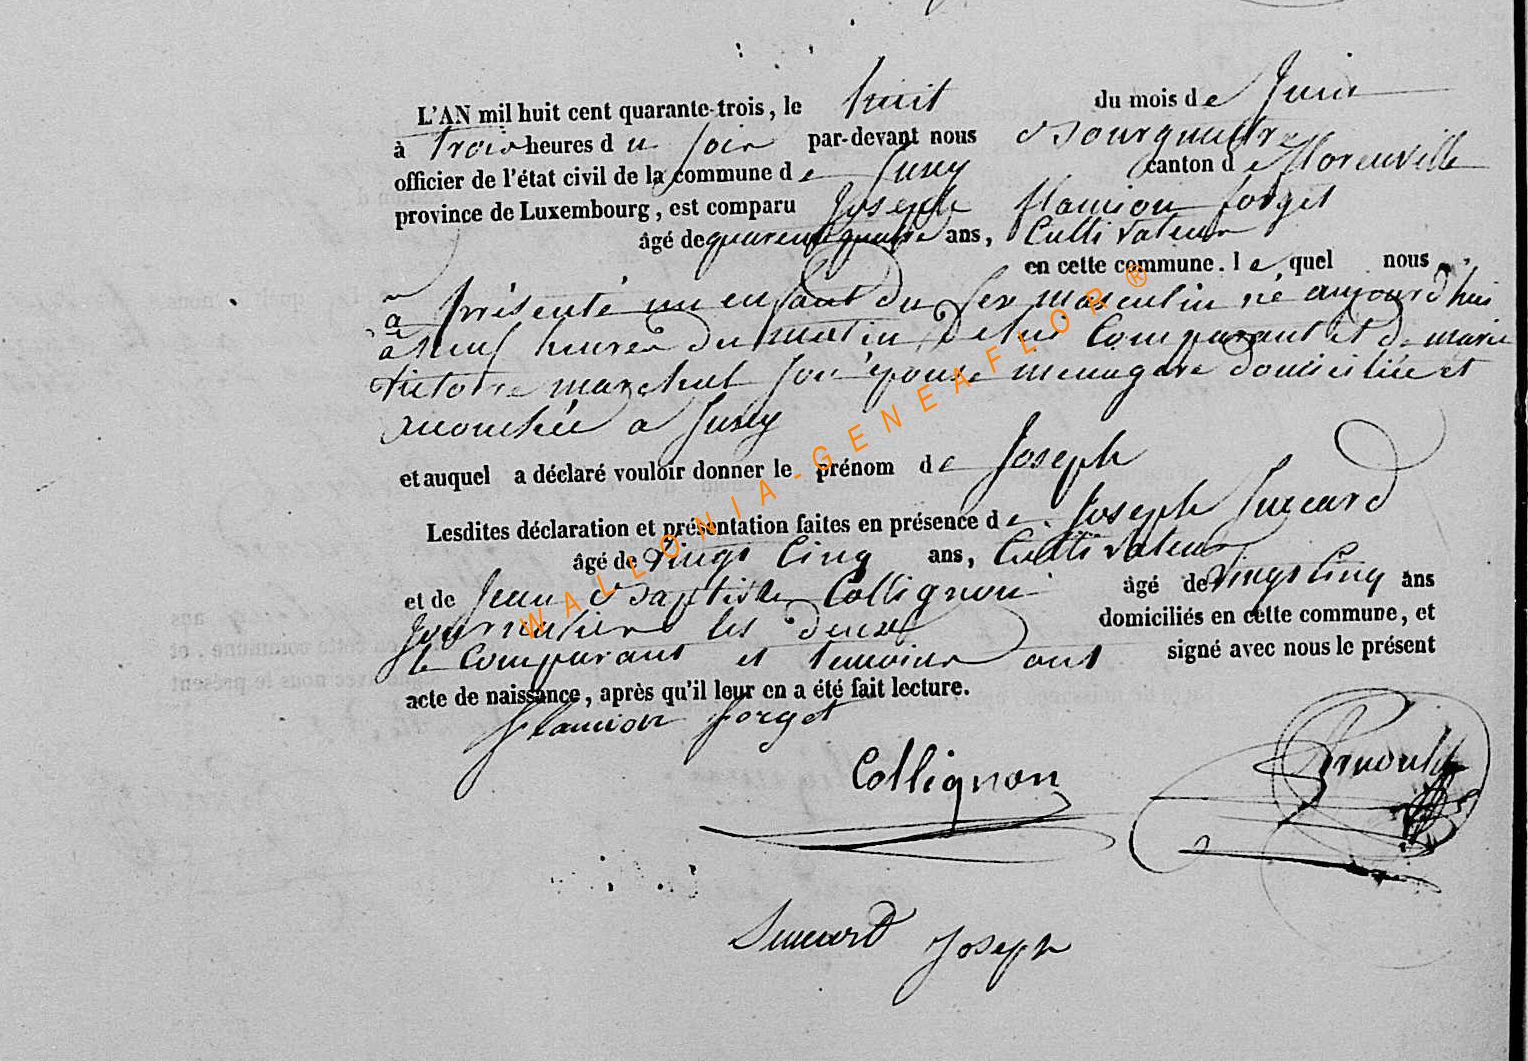 L'AN mil huit cent quarante-trois, le huit du mois de Juin
à trois heures du soir par-devant nous Bourgmestre
officier de l'état civil de la commune de Jusey canton de florenville
province de Luxembourg, est comparu Joseph flamion forget
âgé de quarente quatre ans, Cultivateur
en cette commune. le quel nous
a présenté un enfant du sex masculin né aujourd'hui
à neuf heures du matin, De lui Comparant et de marie
victoire marechal son épouse menagere domiciliée et
accouchée a Jusey
et auquel a déclaré vouloir donner le prénom de Joseph
Lesdites déclaration et présentation faites en présence de Joseph
âgé de vingt Cinq ans, Cultivateur
et de Jean Baptiste Collignon âgé de vingt Cinq ans
Journalier les deux domiciliés en cette commune, et
le Comparant et temoins ont signé avec nous le présent
acte de naissance, après qu'il leur en a été fait lecture.
flamion forget
Collignon
Joseph
WALLONIA-GENEAFLOR®